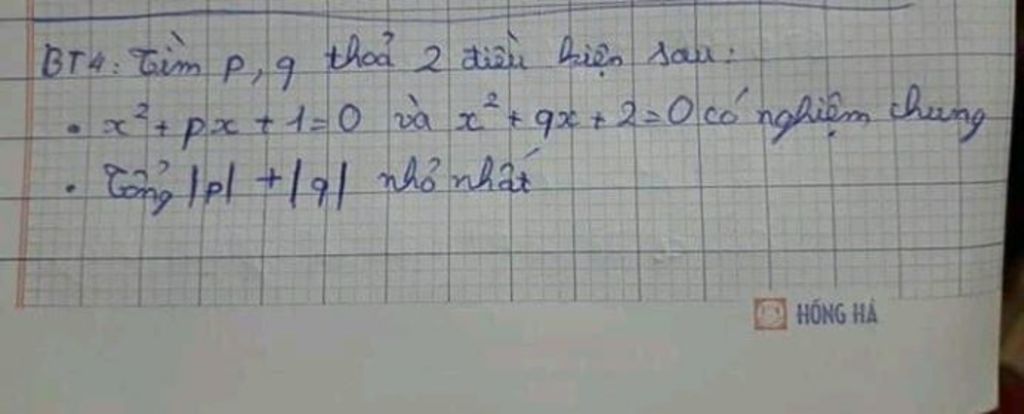 BT4: Tìm p, q thoả 2 điều kiện sau:
• x² + px + 1 = 0 và x² + qx + 2 = 0 có nghiệm chung
• Tổng |p| + |q| nhỏ nhất
HỒNG HÀ